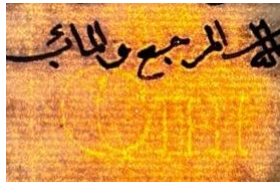 المرجع والمائب